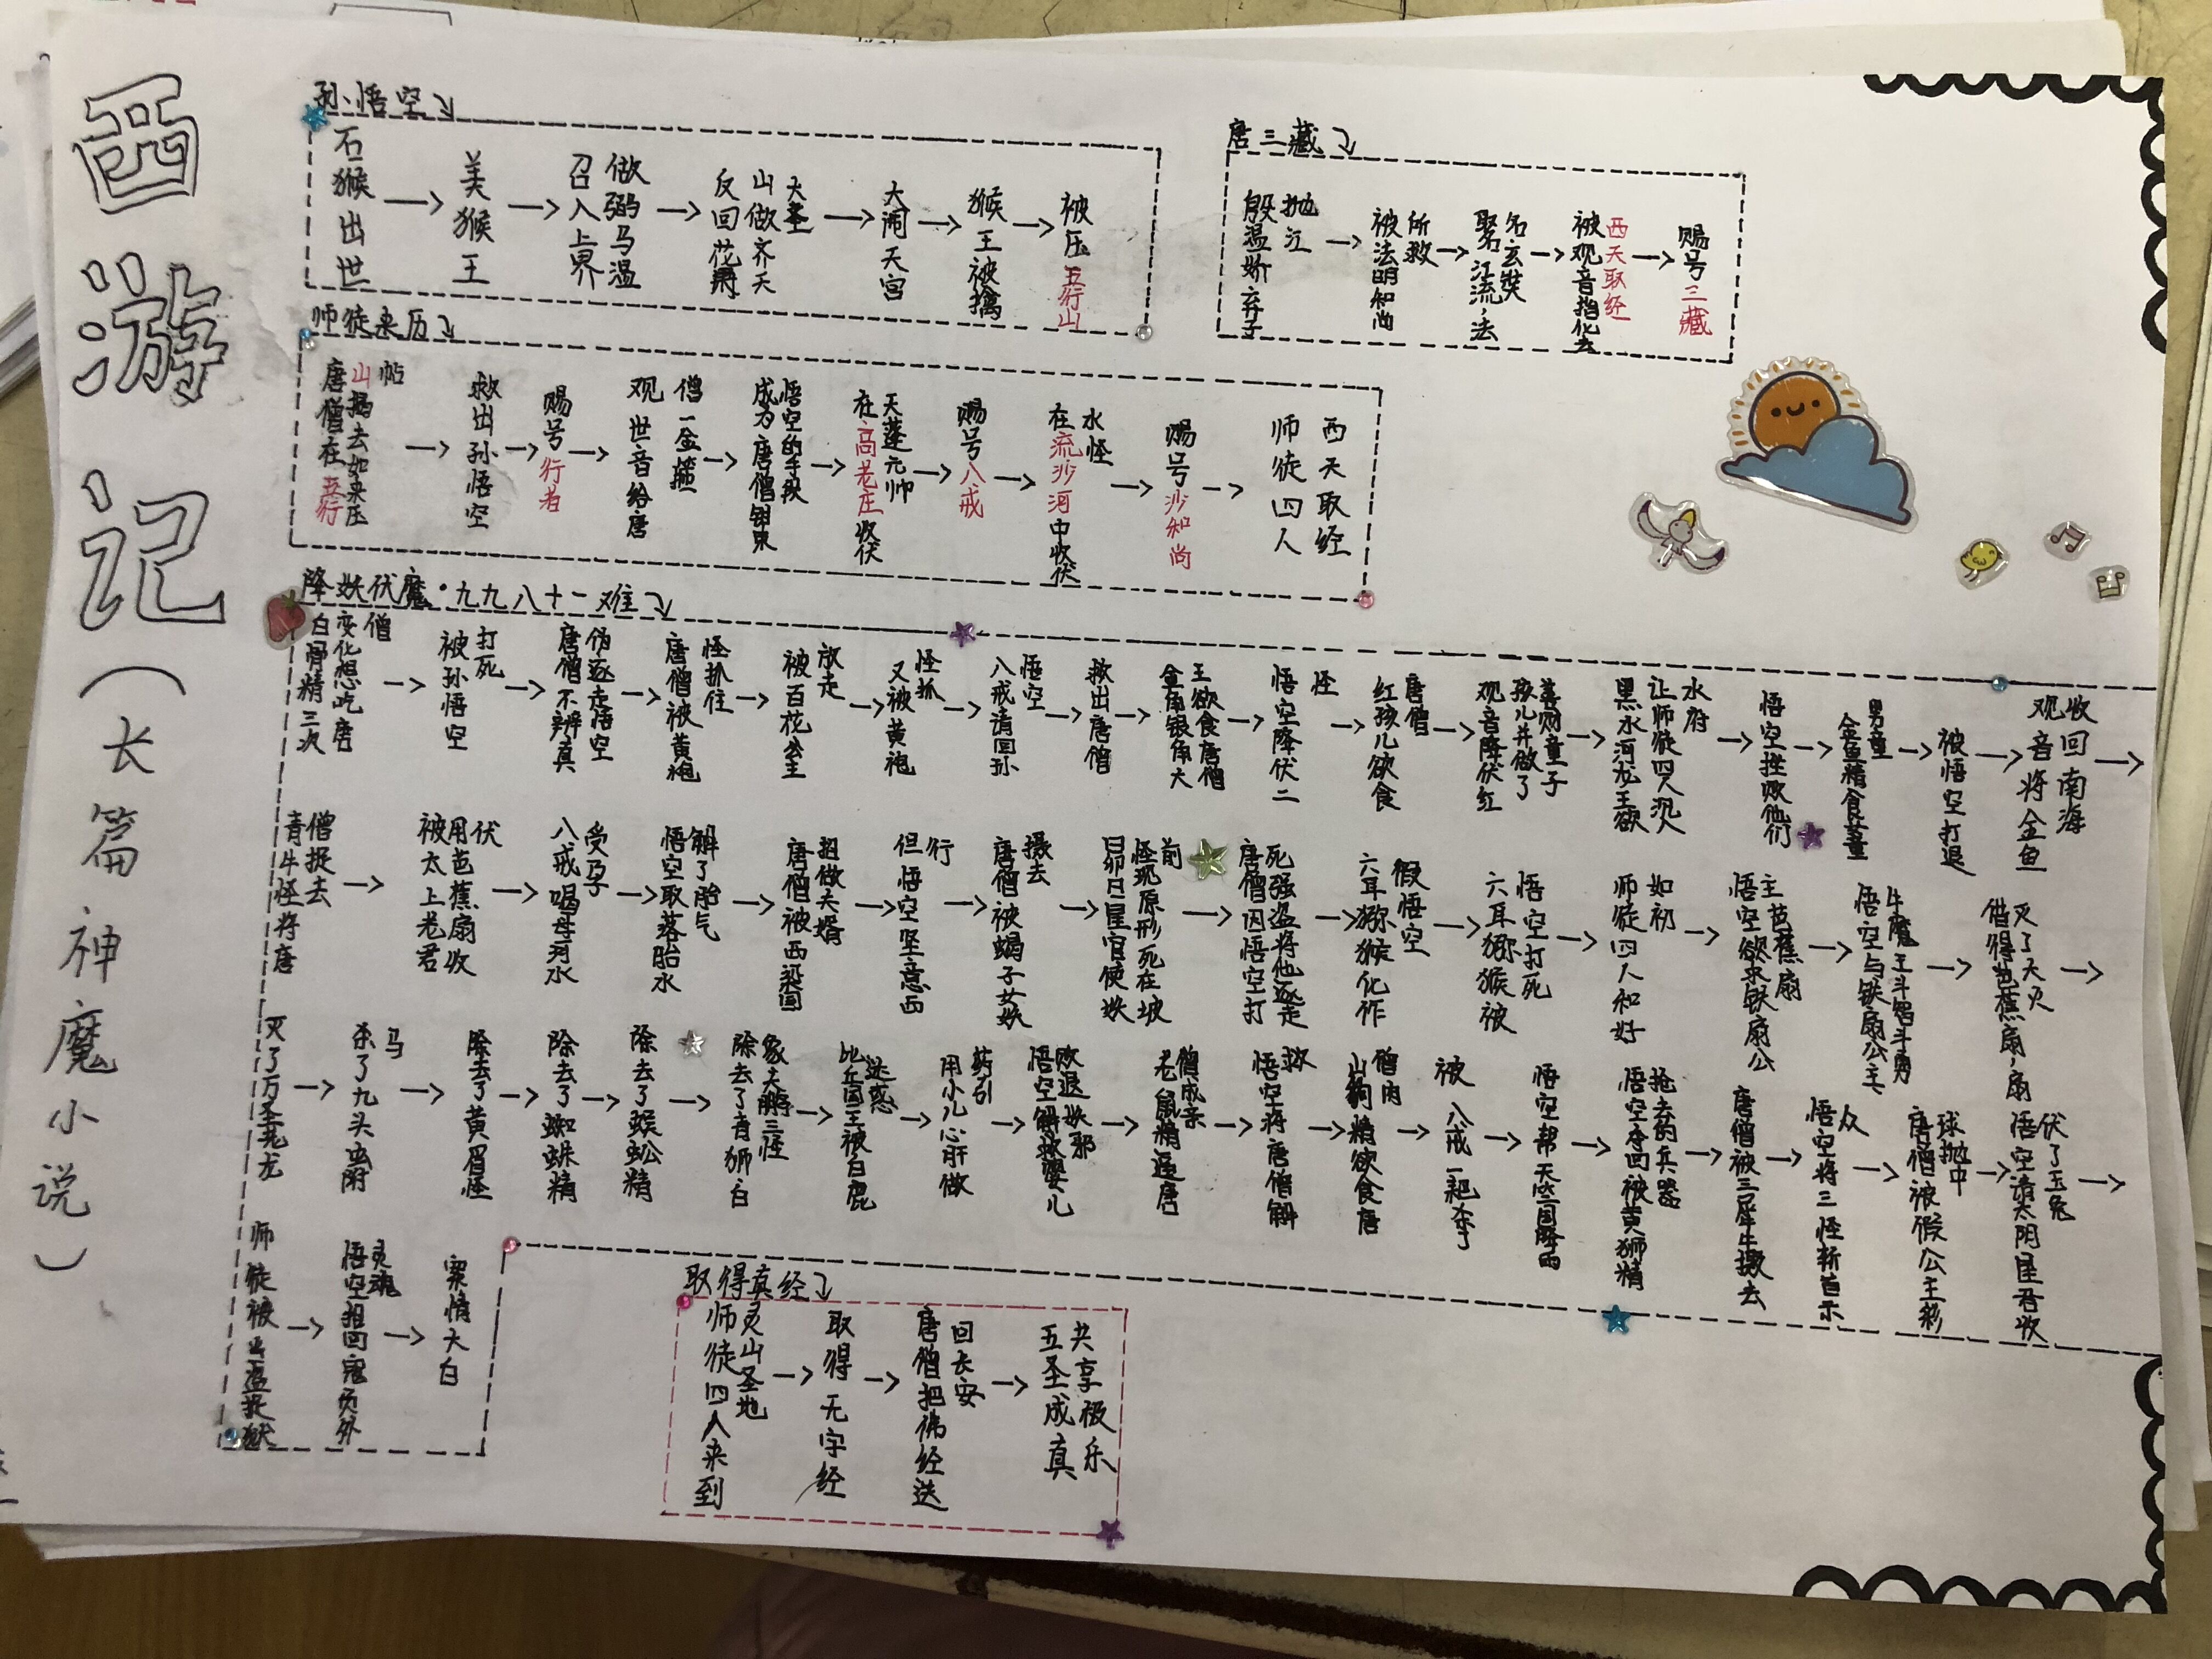 西游记（长篇神魔小说）
孙悟空
石猴出世
美猴王
召入上界
做弼马温
反回花果山做齐天大圣
大闹天宫
猴王被擒
被压五行山
唐三藏
殷温娇弃子
抛江
被法明和尚
所救
名玄奘
被观音指化去
西天取经
赐号三藏
师徒来历
唐僧在五行
山揭去如来压
帖
救出孙悟空
赐号行者
观世音给唐
僧一金箍
成为唐僧钳束
悟空的手段
在高老庄收伏
天蓬元帅
赐号八戒
在流沙河中收伏
水怪
赐号沙和尚
师徒四人
西天取经
降妖伏魔·九九八十一难
白骨精三次
变化想吃唐
僧
被孙悟空
打死
唐僧不辨真
伪逐走悟空
唐僧被黄袍
怪抓住
被百花公主
放走
又被黄袍
怪抓
八戒请回孙
悟空
救出唐僧
金角银角大
王欲食唐僧
悟空降伏二
怪
红孩儿欲食
唐僧
观音降伏红
孩儿并做了
善财童子
黑水河龙王欲
让师徒四人沉入
水府
悟空挫败他们
金鱼精食童
男童
被悟空打退
观音将金鱼
收回南海
青牛怪将唐
僧捉去
被太上老君
用芭蕉扇收
伏
八戒喝母河水
受孕
悟空取落胎水
解了胎气
唐僧被西梁国
招做夫婿
但悟空坚意西
行
唐僧被蝎子女妖
摄去
昴日星官使妖
怪现原形死在坡
前
唐僧因悟空打
死强盗将他逐走
六耳猕猴化作
假悟空
六耳猕猴被
悟空打死
师徒四人和好
如初
悟空欲求铁扇公
主芭蕉扇
悟空与铁扇公主、
牛魔王斗智斗勇
借得芭蕉扇，扇
灭了大火
灭了万圣老龙
杀了九头虫附
马
除去了黄眉怪
除去了蜘蛛精
除去了蜈蚣精
除去了青狮白
象大鹏三怪
比丘国王被白鹿
迷惑
用小儿心肝做
药引
悟空解救婴儿
败退妖邪
老鼠精逼唐
僧成亲
悟空将唐僧解
救
精欲食唐
僧肉
被八戒一耙杀了
悟空帮天竺国降雨
悟空夺回被黄狮精
抢去的兵器
唐僧被三犀牛撒去
悟空将三怪斩首示
众
唐僧被假公主彩
球抛中
悟空请太阴星君收
伏了玉兔
悟空招回寇员外
灵魂
案情大白
取得真经
师徒四人来到
灵山圣地
取得无字经
唐僧把佛经送
回长安
五圣成真
共享极乐